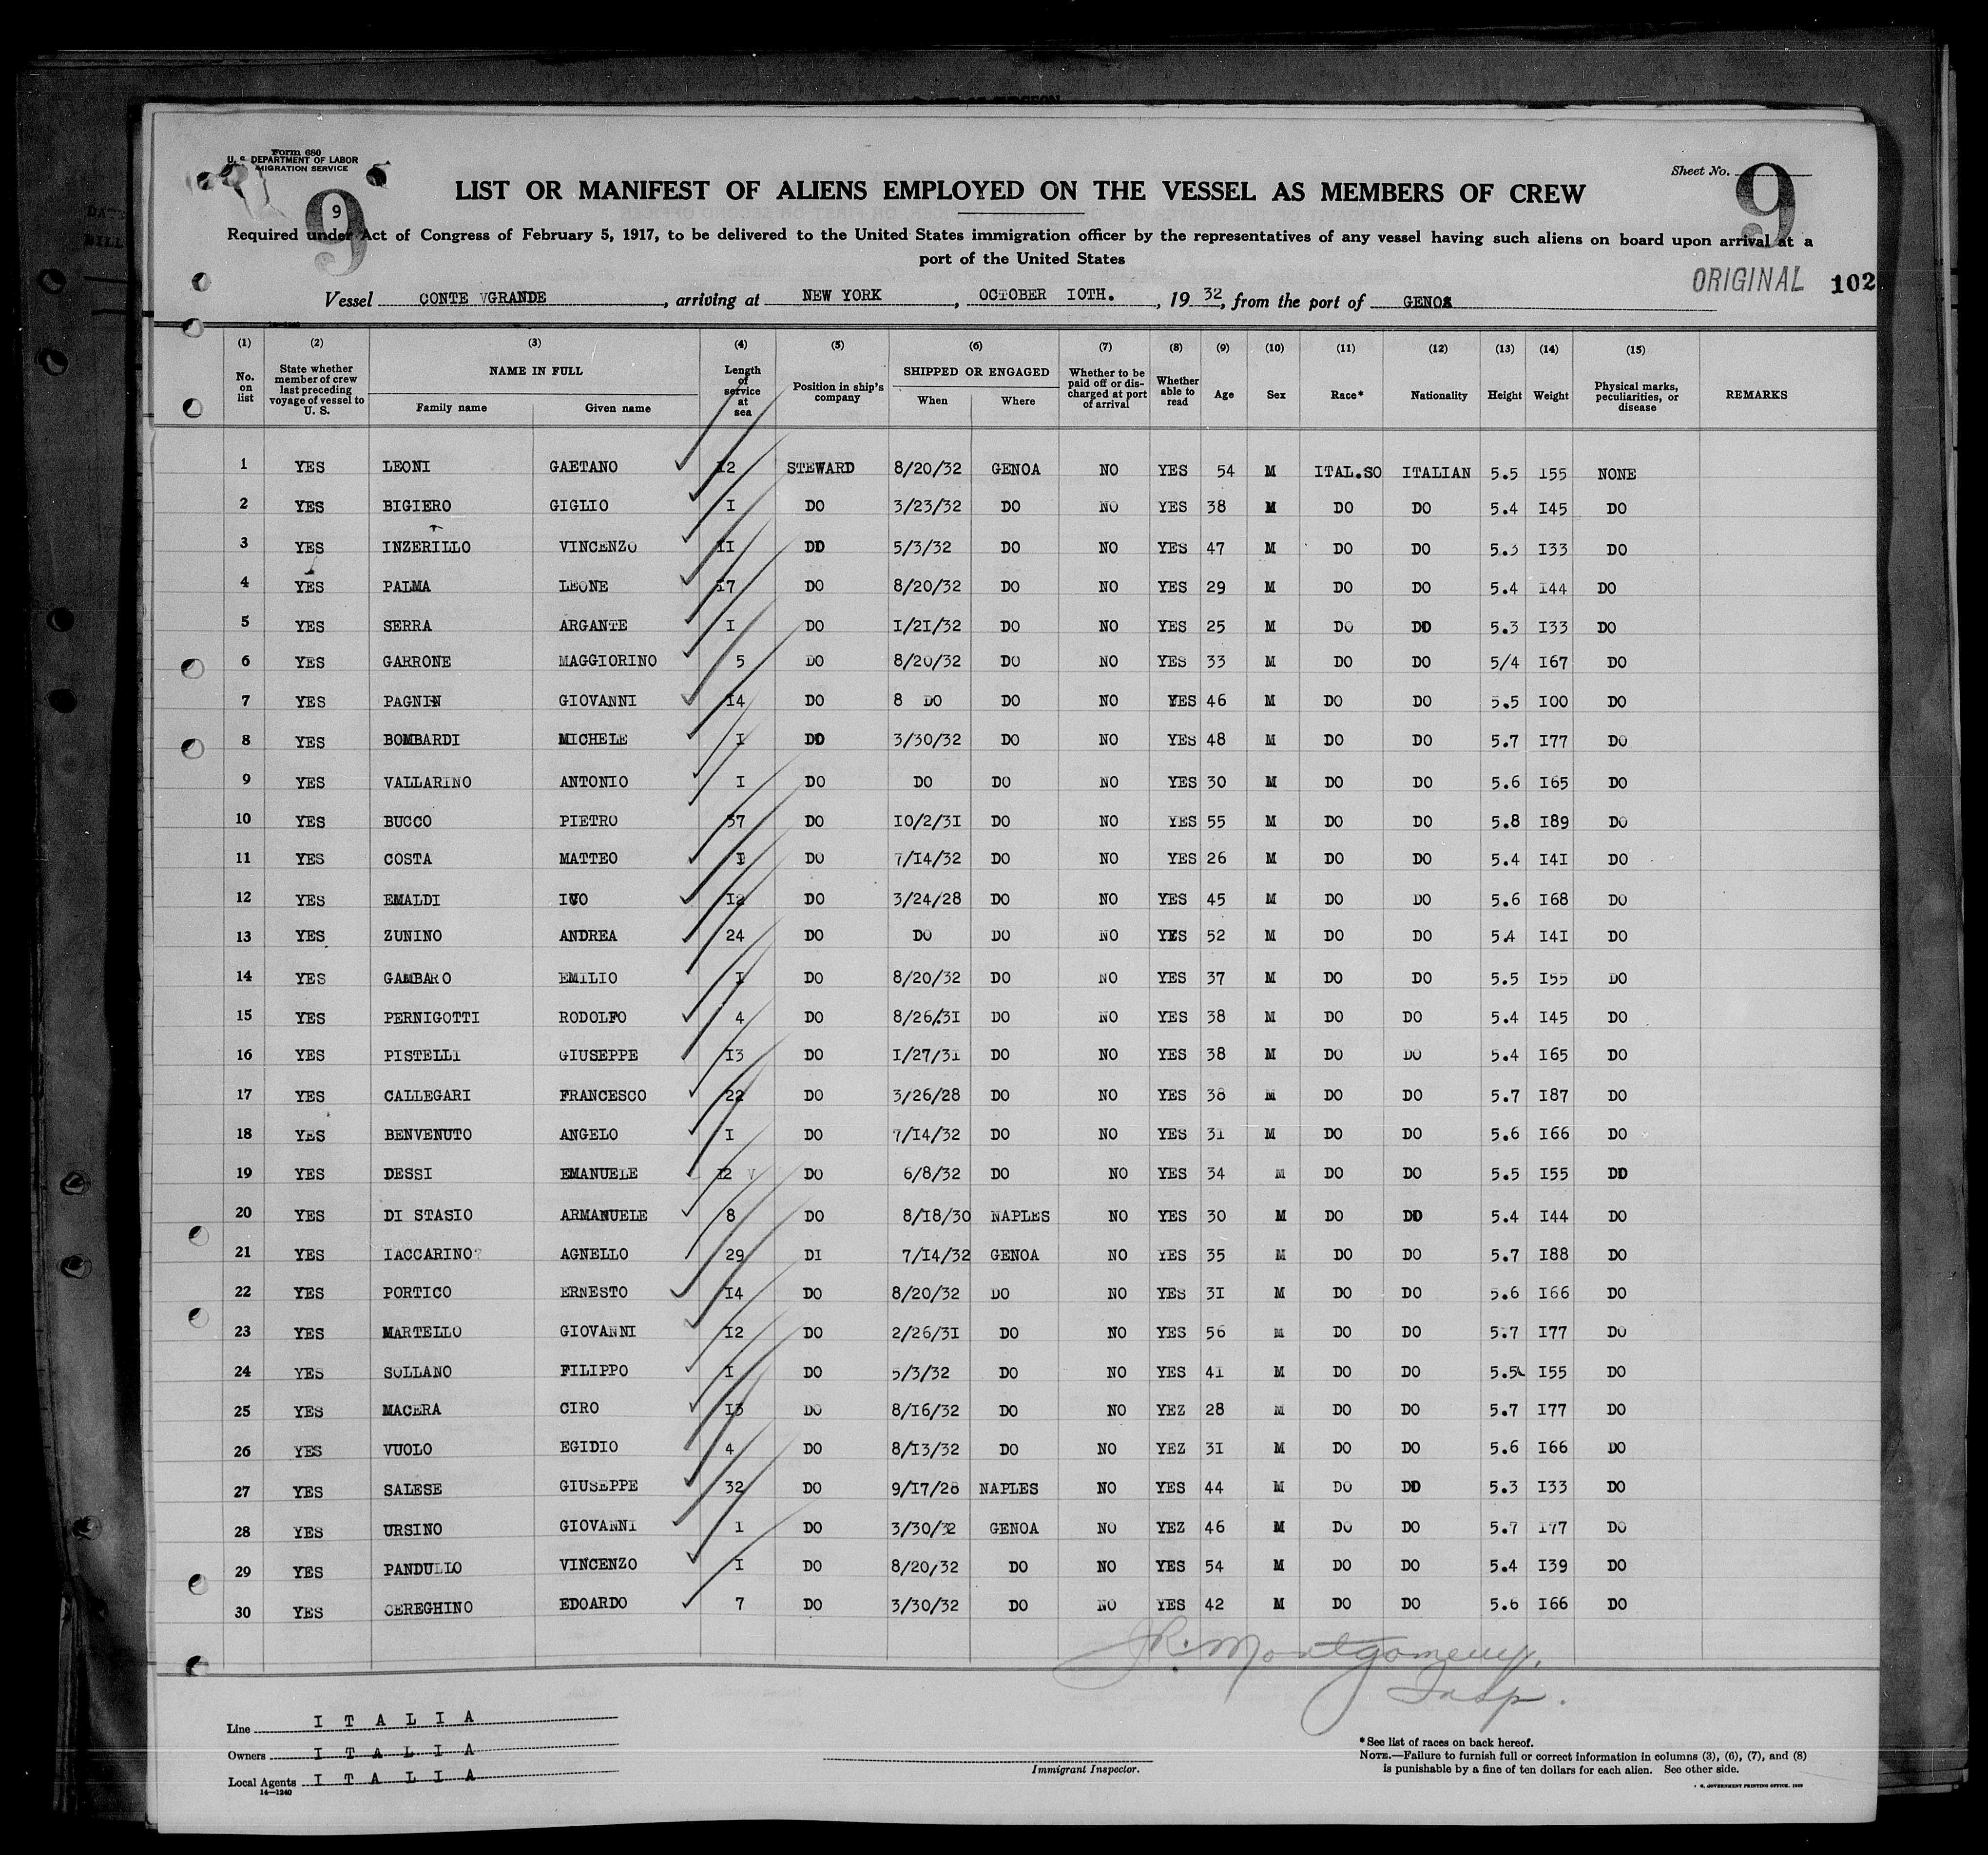 Form 680
U. S. DEPARTMENT OF LABOR
MIGRATION SERVICE
9 9
Sheet No. 9
LIST OR MANIFEST OF ALIENS EMPLOYED ON THE VESSEL AS MEMBERS OF CREW
Required under Act of Congress of February 5, 1917, to be delivered to the United States immigration officer by the representatives of any vessel having such aliens on board upon arrival at a
port of the United States
ORIGINAL 102
Vessel CONTE GRANDE, arriving at NEW YORK, OCTOBER IOTH., 19 32, from the port of GENOA
(1) (2) (3) (4) (5) (6) (7) (8) (9) (10) (11) (12) (13) (14) (15)
No. on list State whether member of crew last preceding voyage of vessel to U. S. NAME IN FULL Family name Given name Length of service at sea Position in ship's company SHIPPED OR ENGAGED When Where Whether to be paid off or discharged at port of arrival Whether able to read Age Sex Race* Nationality Height Weight Physical marks, peculiarities, or disease REMARKS
1 YES LEONI GAETANO 12 STEWARD 8/20/32 GENOA NO YES 54 M ITAL.SO ITALIAN 5.5 I55 NONE
2 YES BIGIERO GIGLIO I DO 3/23/32 DO NO YES 38 M DO DO 5.4 I45 DO
3 YES INZERILLO VINCENZO II DD 5/3/32 DO NO YES 47 M DO DO 5.3 I33 DO
4 YES PALMA LEONE 17 DO 8/20/32 DO NO YES 29 M DO DO 5.4 I44 DO
5 YES SERRA ARGANTE I DO I/2I/32 DO NO YES 25 M DO DD 5.3 I33 DO
6 YES GARRONE MAGGIORINO 5 DO 8/20/32 DO NO YES 33 M DO DO 5/4 I67 DO
7 YES PAGNIN GIOVANNI I4 DO 8 DO DO NO YES 46 M DO DO 5.5 I00 DO
8 YES BOMBARDI MICHELE I DD 3/30/32 DO NO YES 48 M DO DO 5.7 I77 DO
9 YES VALLARINO ANTONIO I DO DO DO NO YES 30 M DO DO 5.6 I65 DO
10 YES BUCCO PIETRO 37 DO I0/2/3I DO NO YES 55 M DO DO 5.8 I89 DO
11 YES COSTA MATTEO I DO 7/I4/32 DO NO YES 26 M DO DO 5.4 I4I DO
12 YES EMALDI IVO I2 DO 3/24/28 DO NO YES 45 M DO DO 5.6 I68 DO
13 YES ZUNINO ANDREA 24 DO DO DO NO YES 52 M DO DO 5.4 I4I DO
14 YES GAMBARO EMILIO I DO 8/20/32 DO NO YES 37 M DO DO 5.5 I55 DO
15 YES PERNIGOTTI RODOLFO 4 DO 8/26/31 DO NO YES 38 M DO DO 5.4 I45 DO
16 YES PISTELLI GIUSEPPE I3 DO I/27/31 DO NO YES 38 M DO DO 5.4 I65 DO
17 YES CALLEGARI FRANCESCO 22 DO 3/26/28 DO NO YES 38 M DO DO 5.7 I87 DO
18 YES BENVENUTO ANGELO I DO 7/I4/32 DO NO YES 31 M DO DO 5.6 I66 DO
19 YES DESSI EMANUELE I2 DO 6/8/32 DO NO YES 34 M DO DO 5.5 I55 DD
20 YES DI STASIO ARMANUELE 8 DO 8/I8/30 NAPLES NO YES 30 M DO DD 5.4 I44 DO
21 YES IACCARINO? AGNELLO 29 DI 7/I4/32 GENOA NO YES 35 M DO DO 5.7 I88 DO
22 YES PORTICO ERNESTO I4 DO 8/20/32 DO NO YES 3I M DO DO 5.6 I66 DO
23 YES MARTELLO GIOVANNI I2 DO 2/26/3I DO NO YES 56 M DO DO 5.7 I77 DO
24 YES SOLLANO FILIPPO I DO 5/3/32 DO NO YES 4I M DO DO 5.5 I55 DO
25 YES MACERA CIRO I3 DO 8/I6/32 DO NO YEZ 28 M DO DO 5.7 I77 DO
26 YES VUOLO EGIDIO 4 DO 8/I3/32 DO NO YEZ 3I M DO DO 5.6 I66 DO
27 YES SALESE GIUSEPPE 32 DO 9/I7/28 NAPLES NO YES 44 M DO DD 5.3 I33 DO
28 YES URSINO GIOVANNI 1 DO 3/30/32 GENOA NO YEZ 46 M DO DO 5.7 I77 DO
29 YES PANDULLO VINCENZO I DO 8/20/32 DO NO YES 54 M DO DO 5.4 I39 DO
30 YES CEREGHINO EDOARDO 7 DO 3/30/32 DO NO YES 42 M DO DO 5.6 I66 DO
JR. Montgomery,
Insp.
Line I T A L I A
Owners I T A L I A
Local Agents I T A L I A
14—1240
Immigrant Inspector.
*See list of races on back hereof.
NOTE.—Failure to furnish full or correct information in columns (3), (6), (7), and (8)
is punishable by a fine of ten dollars for each alien. See other side.
U. S. GOVERNMENT PRINTING OFFICE.